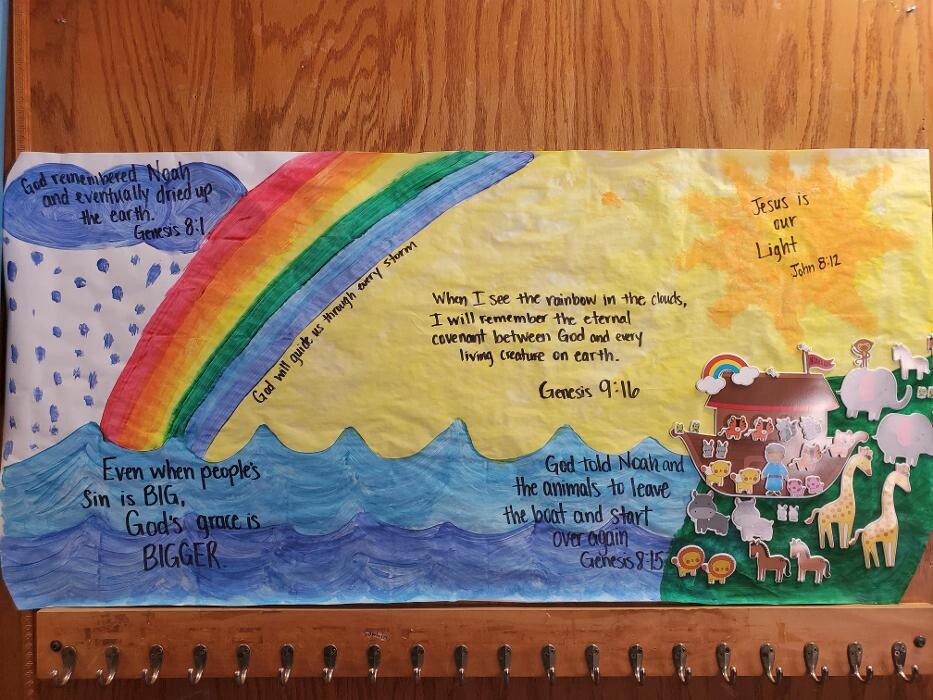 God remembered Noah
and eventually dried up
the earth.
Genesis 8:1
God will guide us through every storm
When I see the rainbow in the clouds,
I will remember the eternal
covenant between God and every
living creature on earth.
Genesis 9:16
Jesus is
our
Light
John 8:12
Even when people's
sin is BIG,
God's grace is
BIGGER.
God told Noah and
the animals to leave
the boat and start
over again
Genesis 8:15